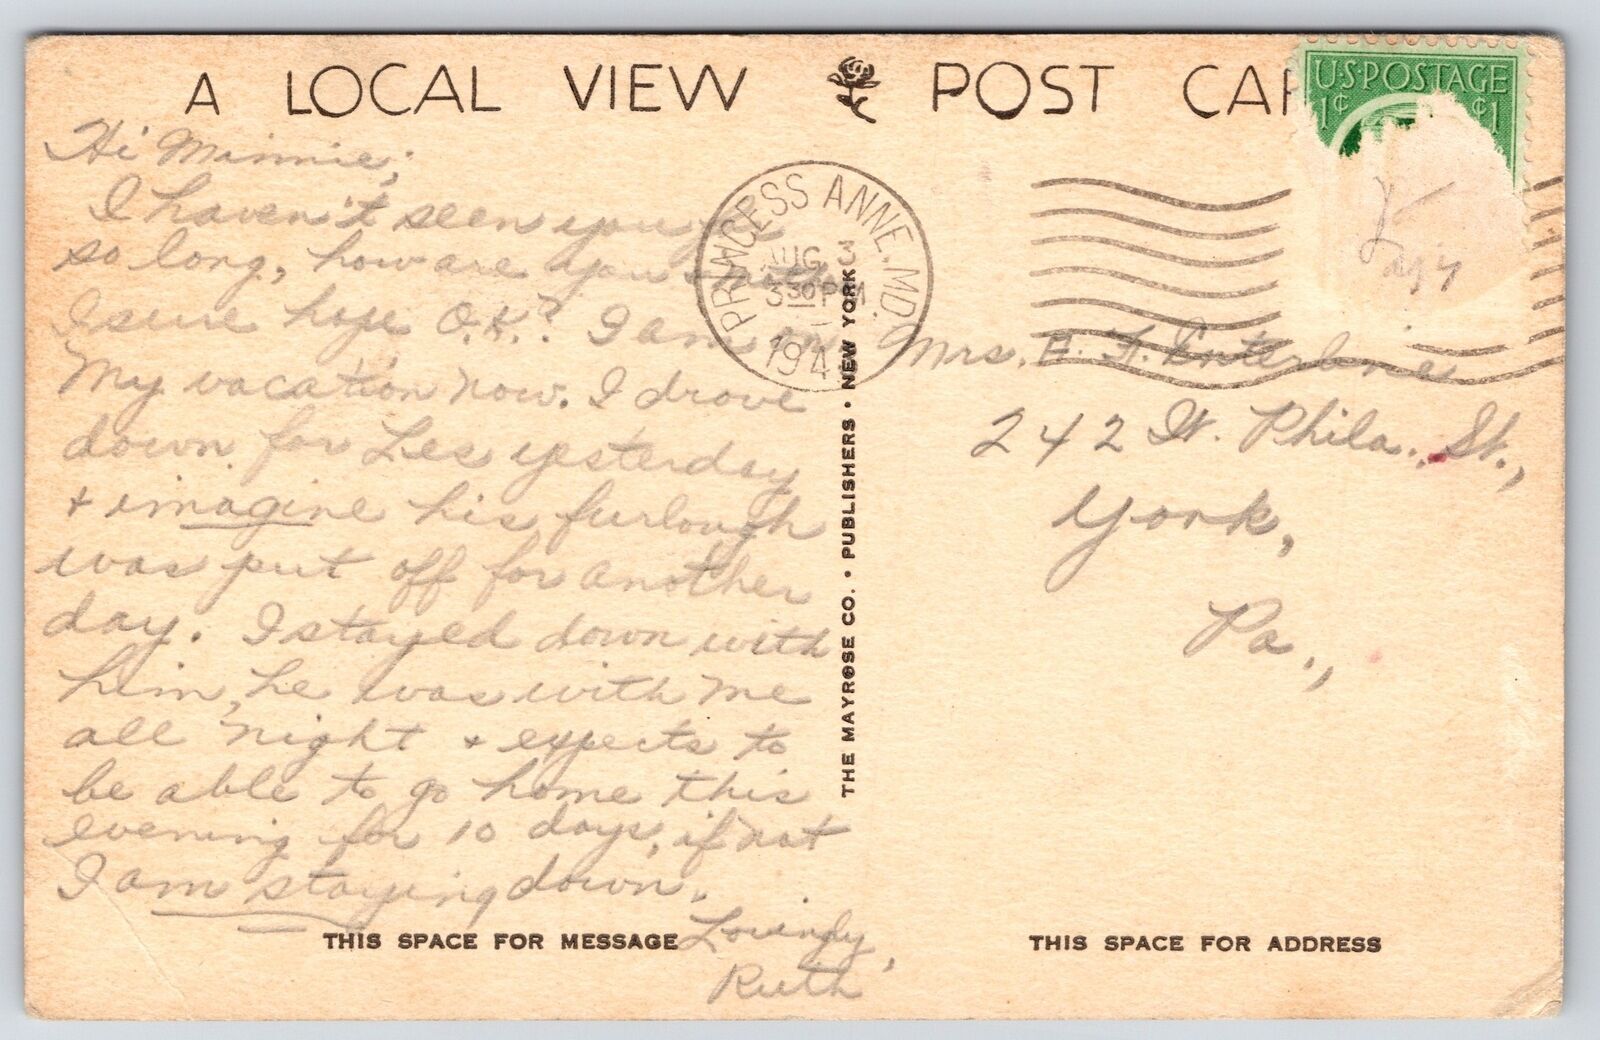 A LOCAL VIEW POST CAR
U·S·POSTAGE
1¢ ¢1
PRINCESS ANNE, MD.
AUG 3
3 30 PM
194
Hi Minnie;
I haven't seen you for
so long, how are you +
I sure hope O.K.? I am on
My vacation now. I drove
down for Les yesterday
+ imagine his furlough
was put off for another
day. I stayed down with
him, he was with me
all night + expects to
be able to go home this
evening for 10 days, if not
I am staying down.
Lovingly,
Ruth
THIS SPACE FOR MESSAGE
THE MAYROSE CO. · PUBLISHERS · NEW YORK
Mrs. E. F. Enterline
242 W. Phila. St.,
York,
Pa.,
THIS SPACE FOR ADDRESS